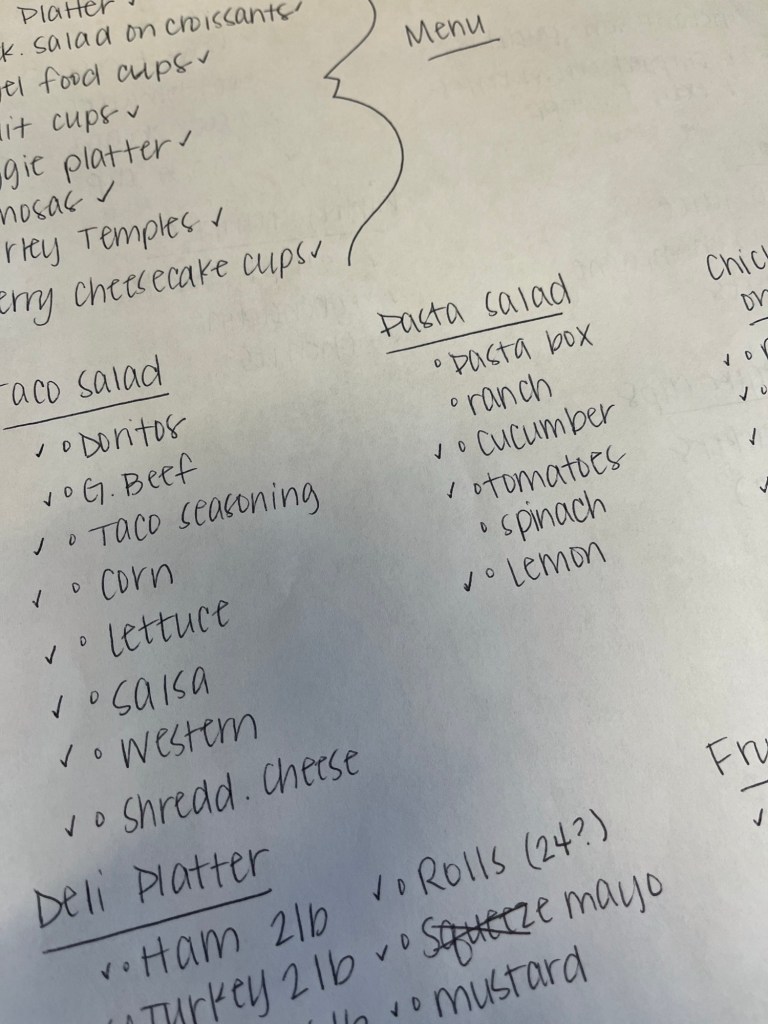 Platter ✓
k. salad on croissants ✓
el food cups ✓
it cups ✓
gie platter ✓
mosas ✓
rkey Temples ✓
erry cheesecake cups ✓
Menu
Taco salad
✓ ∘ Doritos
✓ ∘ G. Beef
✓ ∘ Taco seasoning
✓ ∘ corn
✓ ∘ lettuce
✓ ∘ salsa
✓ ∘ western
✓ ∘ shredd. cheese
Pasta salad
∘ pasta box
∘ ranch
✓ ∘ cucumber
✓ ∘ tomatoes
∘ spinach
✓ ∘ lemon
Chic
on
Fru
Deli Platter
✓ ∘ Ham 2lb
✓ ∘ Turkey 2lb
lb
✓ ∘ Rolls (24?)
✓ ∘ squeeze mayo
✓ ∘ mustard